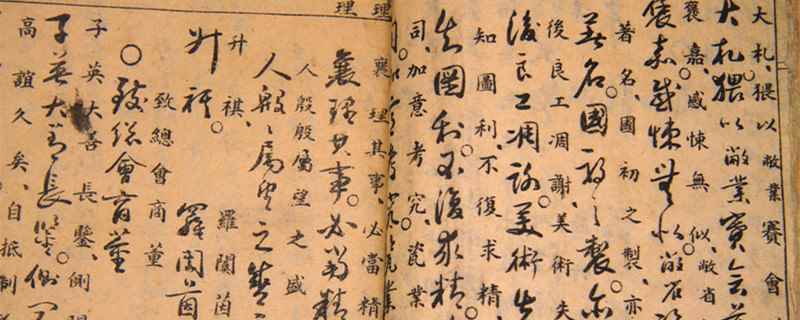 大札、猥以敝業賽會
大札。猥以敝業賽會
褒嘉、感悚無似、敝省
褒嘉。感悚無似。敝省
著名、國初之製、亦
著名。國初之製。亦
後良工凋謝、美術失
後良工凋謝。美術失
知圖利、不復求精、
知圖利。不復求精
司、加意考究、瓷業
理 理
襄理其事、必當精
襄理其事。必當精
人殷殷屬望之盛
人殷殷屬望之盛
升祺、 羅闓茵
升祺。 羅闓茵
致總會商董
〇致總會商董
子英大善長鑒、側聞
子英大善長鑒。側聞
高誼久矣、自抵制